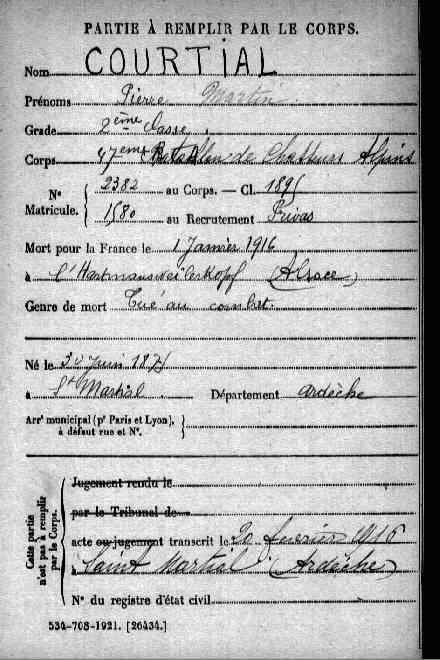 PARTIE À REMPLIR PAR LE CORPS.
Nom COURTIAL
Prénoms Pierre Martin.
Grade 2ème classe.
Corps 47ème Bataillon de Chasseurs Alpins
N° Matricule. { 2382 au Corps. — Cl. 1895
1580 au Recrutement Privas
Mort pour la France le 1 Janvier 1916
à l'Hartmansweilerkopf (Alsace)
Genre de mort Tué au combat.
Né le Juin 1875
à St Martial. Département Ardèche
Arrt municipal (pr Paris et Lyon), à défaut rue et N°. }
Cette partie n'est pas à remplir par le Corps.
Jugement rendu le
par le Tribunal de
acte ou jugement transcrit le 20 février 1916
à Saint Martial (Ardèche)
N° du registre d'état civil
534-708-1921. [26434.]